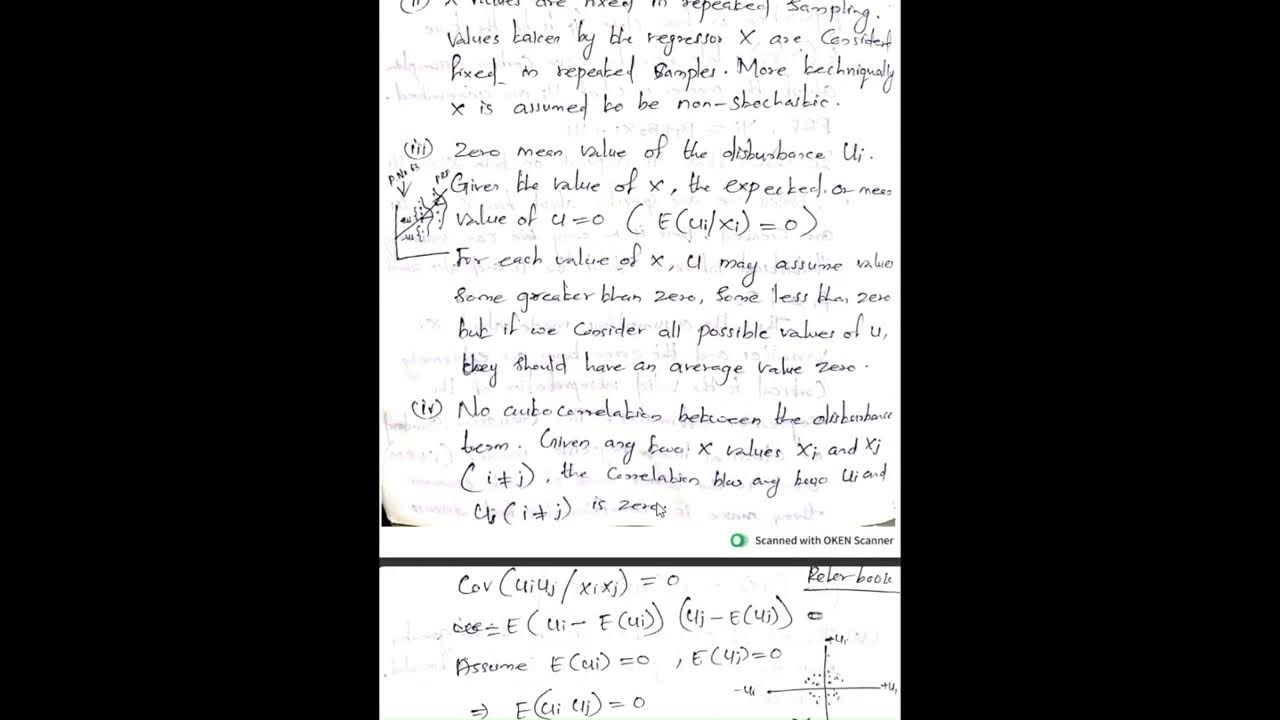 (ii) X values are fixed in repeated sampling.
Values taken by the regressor X are Considerd
fixed in repeated samples. More techniqually
X is assumed to be non-stochastic.
(iii) Zero mean value of the disturbance Ui.
P.No 63
PRF
Given the value of X, the expected or mean
value of u=0 ( E(ui/xi) = 0 )
+ui
-ui
For each value of X, u may assume values
Some greater than zero, Some less than zero
but if we Consider all possible values of u,
they should have an average value zero.
(iv) No autocorrelation between the disturbance
term. Given any two X values Xi and Xj
(i≠j), the Correlation b/w any two Ui and
Uj (i≠j) is zero
Scanned with OKEN Scanner
Cov (uiuj / xixj) = 0
Refer book
= E (ui - E(ui)) (uj - E(uj))
+ui
Assume E(ui) = 0 , E(uj) = 0
-ui
+ui
⇒ E(ui uj) = 0